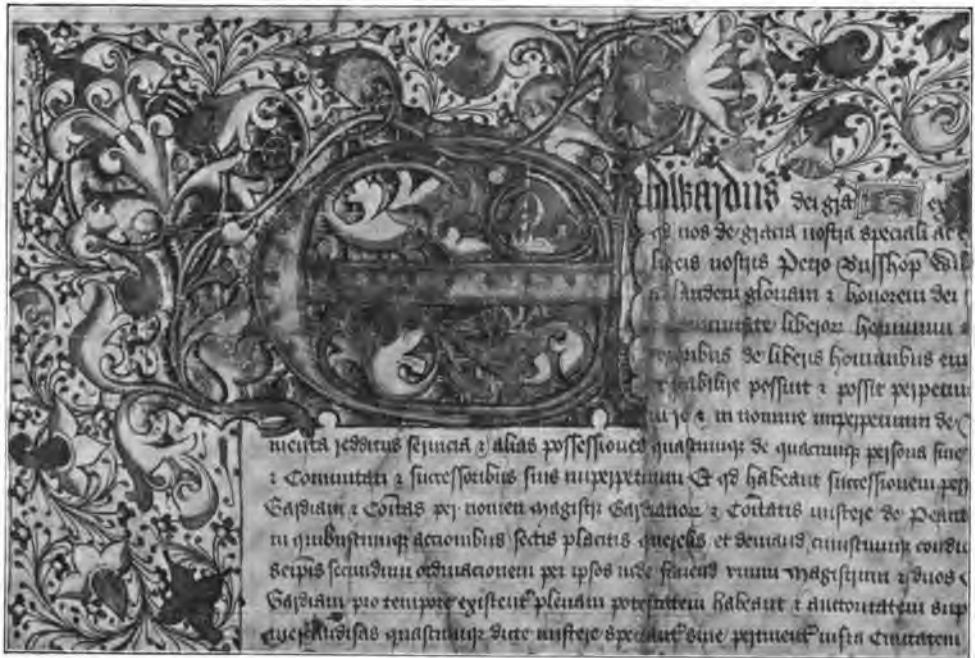 Edwardus dei gra
qd nos de gracia nostra speciali ac
ligeis nostris Petro Bisshop
laudem gloriam & honorem dei
liberor hominum
de liberis hominibus
stabilire possint & possit perpetuu
re & in nomine imperpetuum de
menta redditus servicia & alias possessiones quascumq de quacumq persona sive
& Comunitati & successoribus suis imperpetuum Et qd habeant successionem per
Gardiani & Coitas per nomen Magistri Gardianor & Coitatis mistere de Peaut
in quibuscumq accionibus sectis placitis querelis et demand cuiuscumq condic
scripis secundum ordinacionem per ipsos inde fiend unum Magistrum & duos
Gardiani pro tempore existent plenam potestatem habeant & auctoritatem sup
merchandisas quascumq dicte mistere spectant sive pertinent infra Civitatem